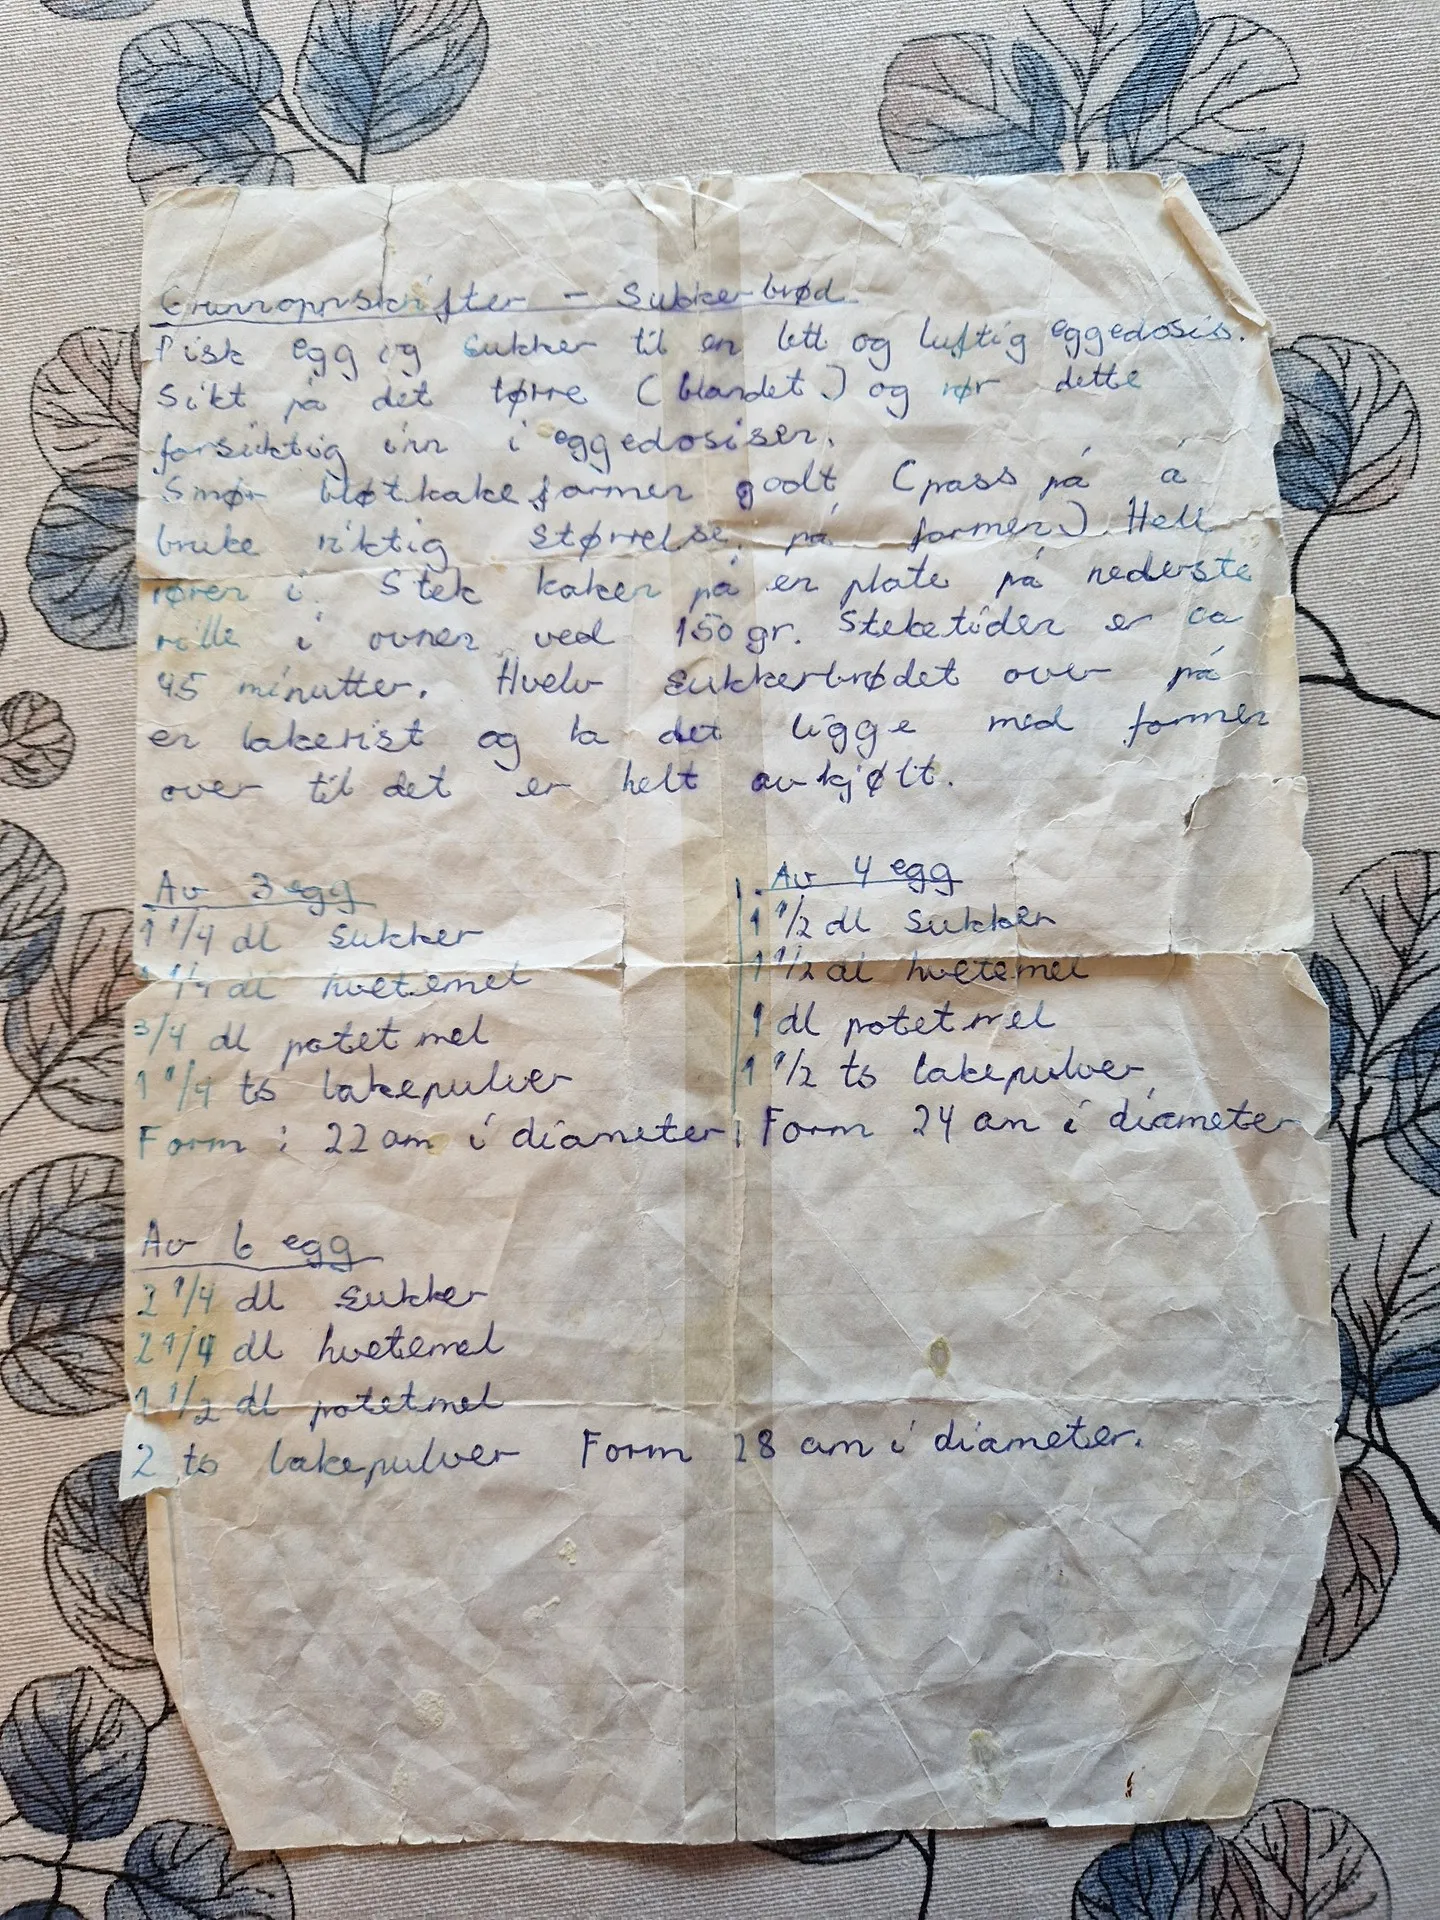 Grunnoppskrifter - Sukkerbrød
Pisk egg og sukker til en lett og luftig eggedosis.
Sikt på det tørre (blandet) og rør dette
forsiktig inn i eggedosisen.
Smør bløtkakeformen godt (pass på å
bruke riktig størrelse på formen) Hell
røren i. Stek kaken på en plate på nederste
rille i ovnen ved 150 gr. Steketiden er ca
45 minutter. Hvelv sukkerbrødet over på
en kakerist og la det ligge med formen
over til det er helt avkjølt.
Av 3 egg
1 1/4 dl sukker
1 1/4 dl hvetemel
3/4 dl potetmel
1 1/4 ts bakepulver
Form: 22 cm i diameter
Av 4 egg
1 1/2 dl sukker
1 1/2 dl hvetemel
1 dl potetmel
1 1/2 ts bakepulver
Form 24 cm i diameter
Av 6 egg
2 1/4 dl sukker
2 1/4 dl hvetemel
1 1/2 dl potetmel
2 ts bakepulver Form 28 cm i diameter.